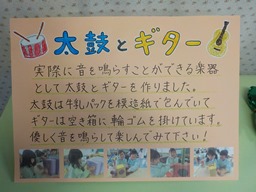 太鼓とギター
実際に音を鳴らすことができる楽器
として太鼓とギターを作りました。
太鼓は牛乳パックを模造紙で包んでいて
ギターは空き箱に輪ゴムを掛けています。
優しく音を鳴らして楽しんでみて下さい!